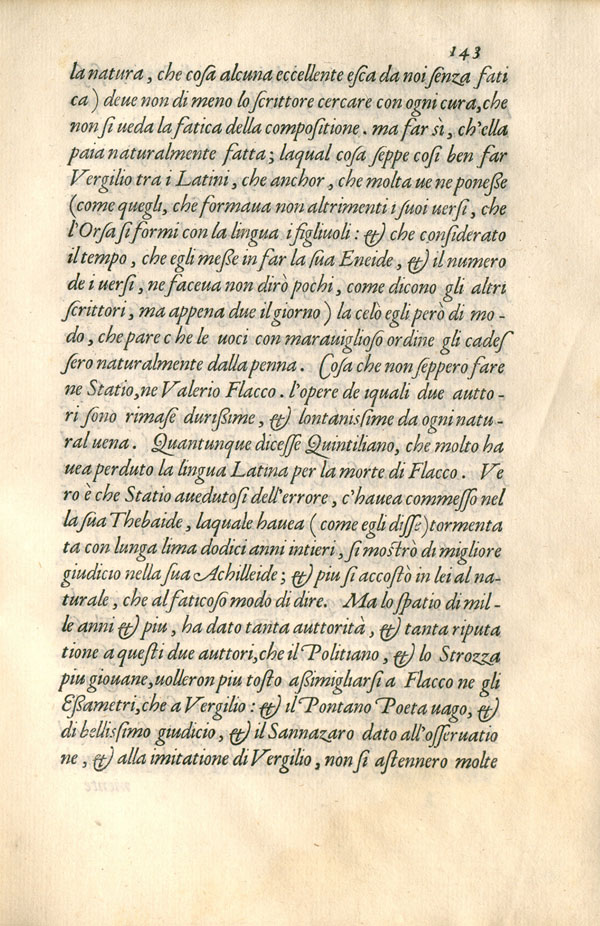 143
la natura, che coſa alcuna eccellente eſca da noi ſenza fati
ca) deue non di meno lo ſcrittore cercare con ogni cura, che
non ſi ueda la fatica della compoſitione. ma far sì, ch'ella
paia naturalmente fatta; laqual coſa ſeppe coſi ben far
Vergilio tra i Latini, che anchor, che molta ue ne poneſſe
(come quegli, che formaua non altrimenti i ſuoi uerſi, che
l'Orſa ſi formi con la lingua i figliuoli: & che conſiderato
il tempo, che egli meſſe in far la ſua Eneide, & il numero
de i uerſi, ne faceua non dirò pochi, come dicono gli altri
ſcrittori, ma appena due il giorno) la celò egli però di mo-
do, che pare c he le uoci con marauiglioſo ordine gli cadeſ
ſero naturalmente dalla penna. Coſa che non ſeppero fare
ne Statio, ne Valerio Flacco. l'opere de iquali due autto-
ri ſono rimaſe duriſſime, & lontaniſſime da ogni natu-
ral uena. Quantunque diceſſe Quintiliano, che molto ha
uea perduto la lingua Latina per la morte di Flacco. Ve
ro è che Statio auedutoſi dell'errore, c'hauea commeſſo nel
la ſua Thebaide, laquale hauea (come egli diſſe) tormenta
ta con lunga lima dodici anni intieri, ſi moſtrò di migliore
giudicio nella ſua Achilleide; & piu ſi accoſtò in lei al na-
turale, che al faticoſo modo di dire. Ma lo ſpatio di mil-
le anni & piu, ha dato tanta auttorità, & tanta riputa
tione a queſti due auttori, che il Politiano, & lo Strozza
piu giouane, uolleron piu toſto aſſimigliarſi a Flacco ne gli
Eſſametri, che a Vergilio: & il Pontano Poeta uago, &
di belliſſimo giudicio, & il Sannazaro dato all'oſſeruatio
ne, & alla imitatione di Vergilio, non ſi aſtennero molte